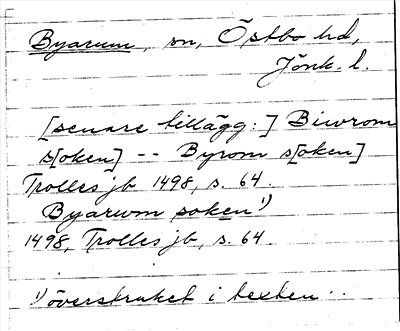 Byarum, sn, Östbo hd,
Jönk. l.
[senare tillägg:] Biwrom
s[oken] -- Byrom s[oken]
Trolles jb 1498, s. 64.
Byarwm soken¹)
1498, Trolles jb, s. 64.
¹) överstruket i texten.